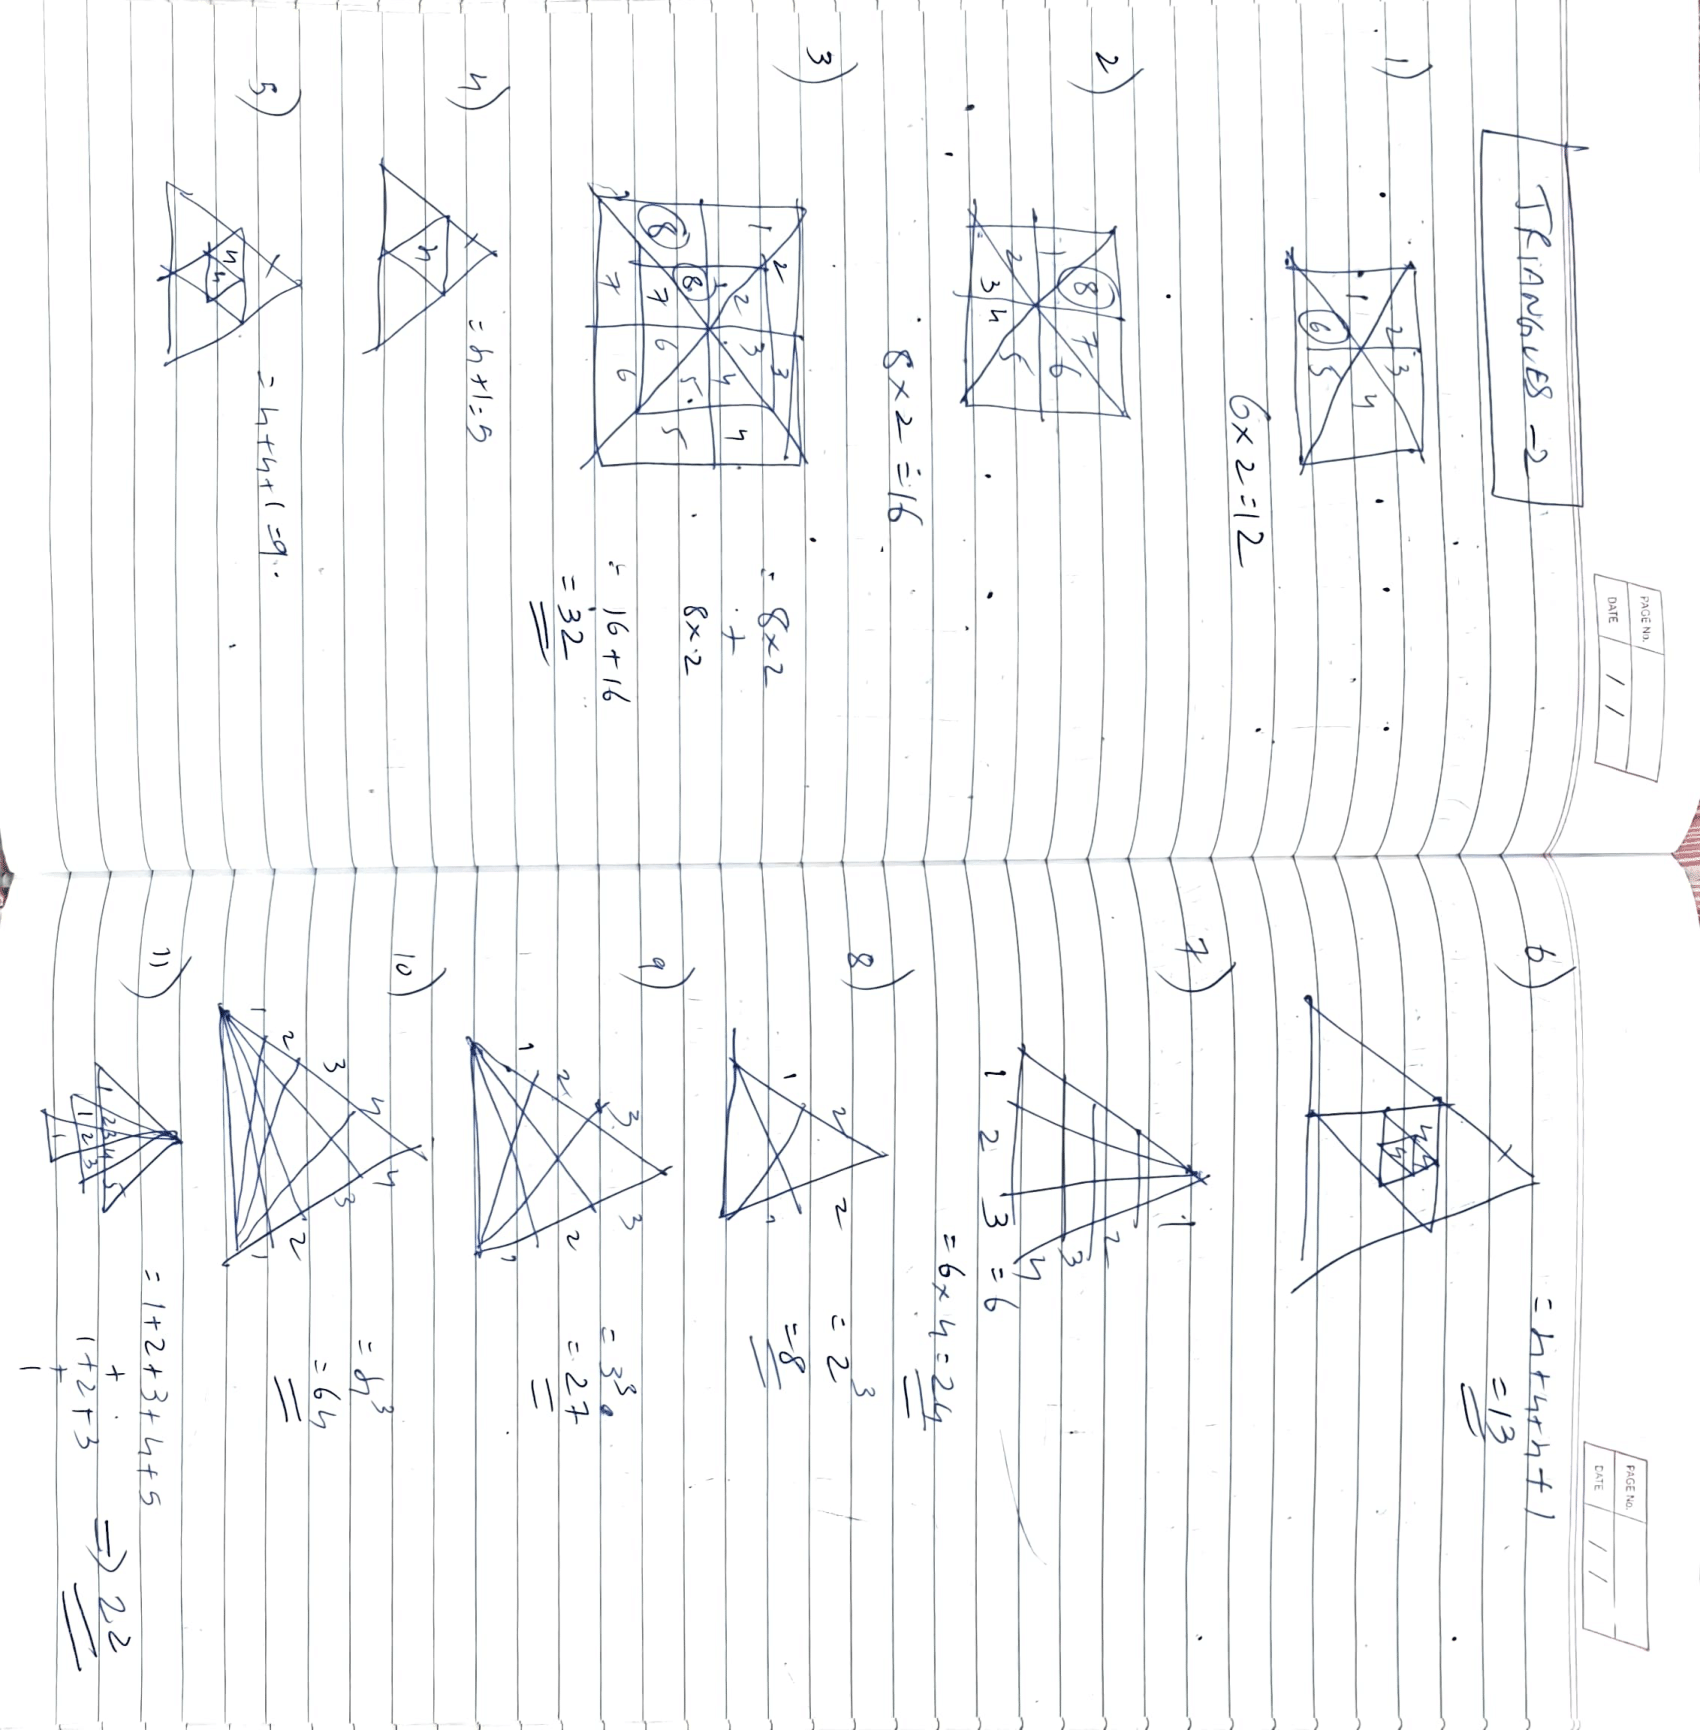 PAGE No.
DATE / /
TRIANGLES -2
1)
1 2 3 4 5 6
6x2=12
2)
1 2 3 4 5 6 7 8
8x2=16
3)
1 2 3 4 5 6 7 8
1 2 3 4 5 6 7 8
= 8x2
+
8x2
= 16+16
= 32
4)
4
= 4+1=5
5)
4
4
= 4+4+1=9.
PAGE No.
DATE / /
6)
4
4
4
= 4+4+4+1
=13
7)
1
2
3
4
1 2 3 = 6
= 6x4=24
8)
1 2
1 2
= 2³
=8
9)
1 2 3
1 2 3
= 3³
= 27
10)
1 2 3 4
1 2 3 4
= 4³
= 64
11)
1 2 3 4 5
1 2 3
1
= 1+2+3+4+5
+
1+2+3
+
1
=> 22